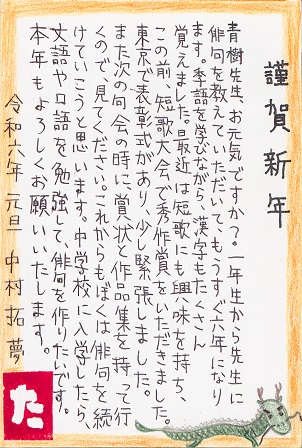 謹賀新年
青樹先生、お元気ですか？一年生から先生に
俳句を教えていただいて、もうすぐ六年になり
ます。季語を学びながら、漢字もたくさん
覚えました。最近は短歌にも興味を持ち、
この前、短歌大会で秀作賞をいただきました。
東京で表彰式があり、少し緊張しました。
また次の句会の時に、賞状と作品集を持って行
くので、見てください。これからもぼくは俳句を続
けていこうと思います。中学校に入学したら、
文語や口語を勉強して、俳句を作りたいです。
本年もよろしくお願いいたします。
令和六年 元旦 中村拓夢
た